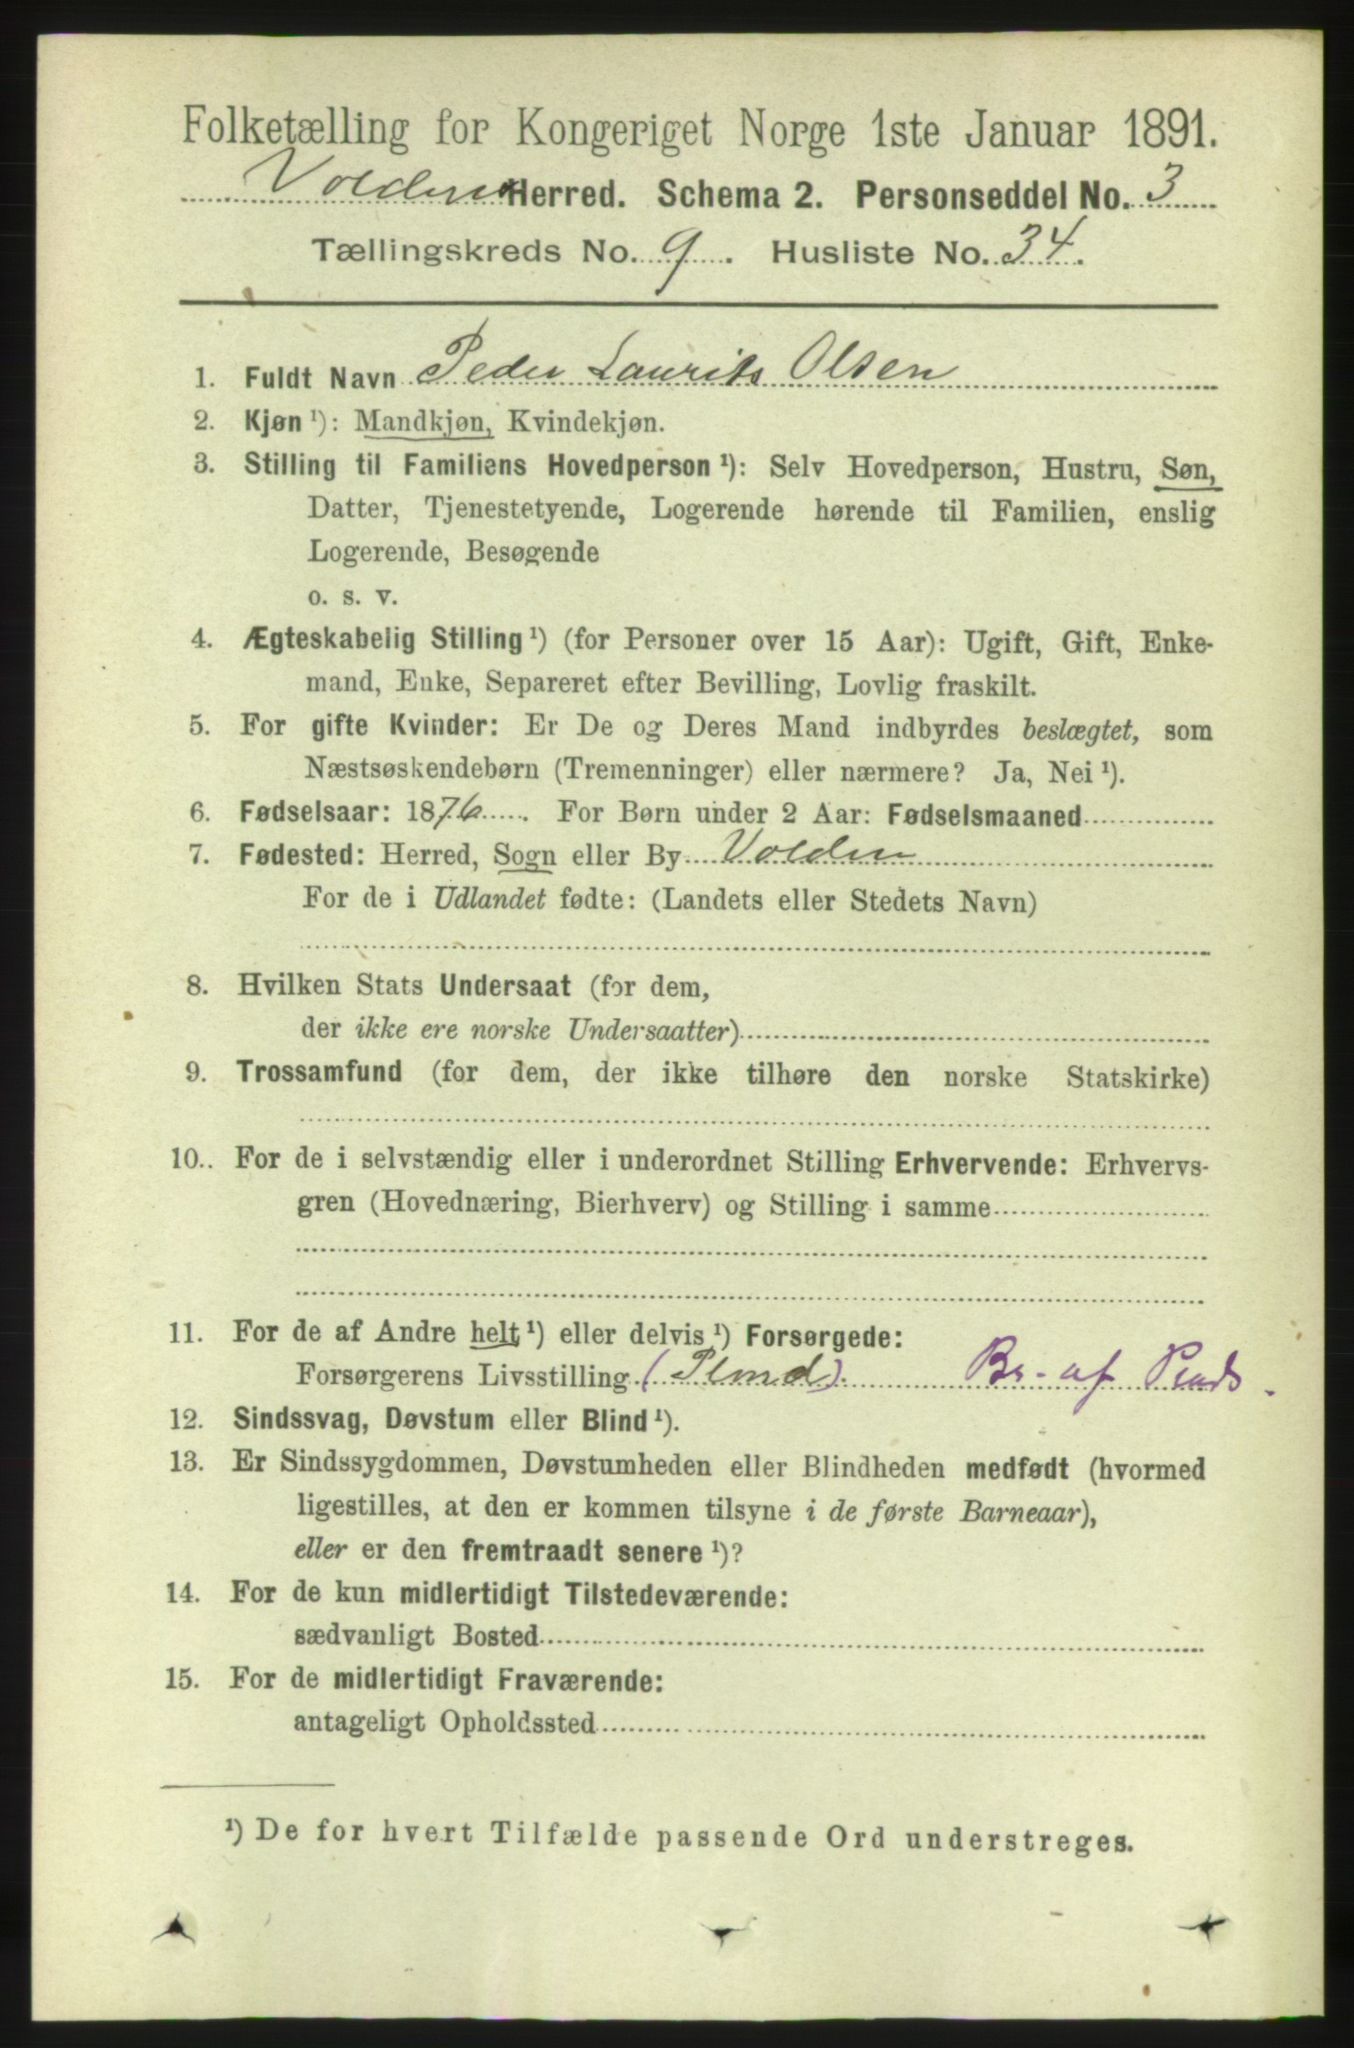 Folketælling for Kongeriget Norge 1ste Januar 1891.
Voldens Herred. Schema 2. Personseddel No. 3
Tællingskreds No. 9. Husliste No. 34.
1. Fuldt Navn Peder Laurits Olsen
2. Kjøn ¹): Mandkjøn, Kvindekjøn.
3. Stilling til Familiens Hovedperson ¹): Selv Hovedperson, Hustru, Søn,
Datter, Tjenestetyende, Logerende hørende til Familien, enslig
Logerende, Besøgende
o. s. v.
4. Ægteskabelig Stilling ¹) (for Personer over 15 Aar): Ugift, Gift, Enke-
mand, Enke, Separeret efter Bevilling, Lovlig fraskilt.
5. For gifte Kvinder: Er De og Deres Mand indbyrdes beslægtet, som
Næstsøskendebørn (Tremenninger) eller nærmere? Ja, Nei ¹).
6. Fødselsaar: 1876. For Børn under 2 Aar: Fødselsmaaned
7. Fødested: Herred, Sogn eller By Volden
For de i Udlandet fødte: (Landets eller Stedets Navn)
8. Hvilken Stats Undersaat (for dem,
der ikke ere norske Undersaatter)
9. Trossamfund (for dem, der ikke tilhøre den norske Statskirke)
10.. For de i selvstændig eller i underordnet Stilling Erhvervende: Erhvervs-
gren (Hovednæring, Bierhverv) og Stilling i samme
11. For de af Andre helt ¹) eller delvis ¹) Forsørgede:
Forsørgerens Livsstilling Br. af
12. Sindssvag, Døvstum eller Blind ¹).
13. Er Sindssygdommen, Døvstumheden eller Blindheden medfødt (hvormed
ligestilles, at den er kommen tilsyne i de første Barneaar),
eller er den fremtraadt senere ¹)?
14. For de kun midlertidigt Tilstedeværende:
sædvanligt Bosted
15. For de midlertidigt Fraværende:
antageligt Opholdssted
¹) De for hvert Tilfælde passende Ord understreges.